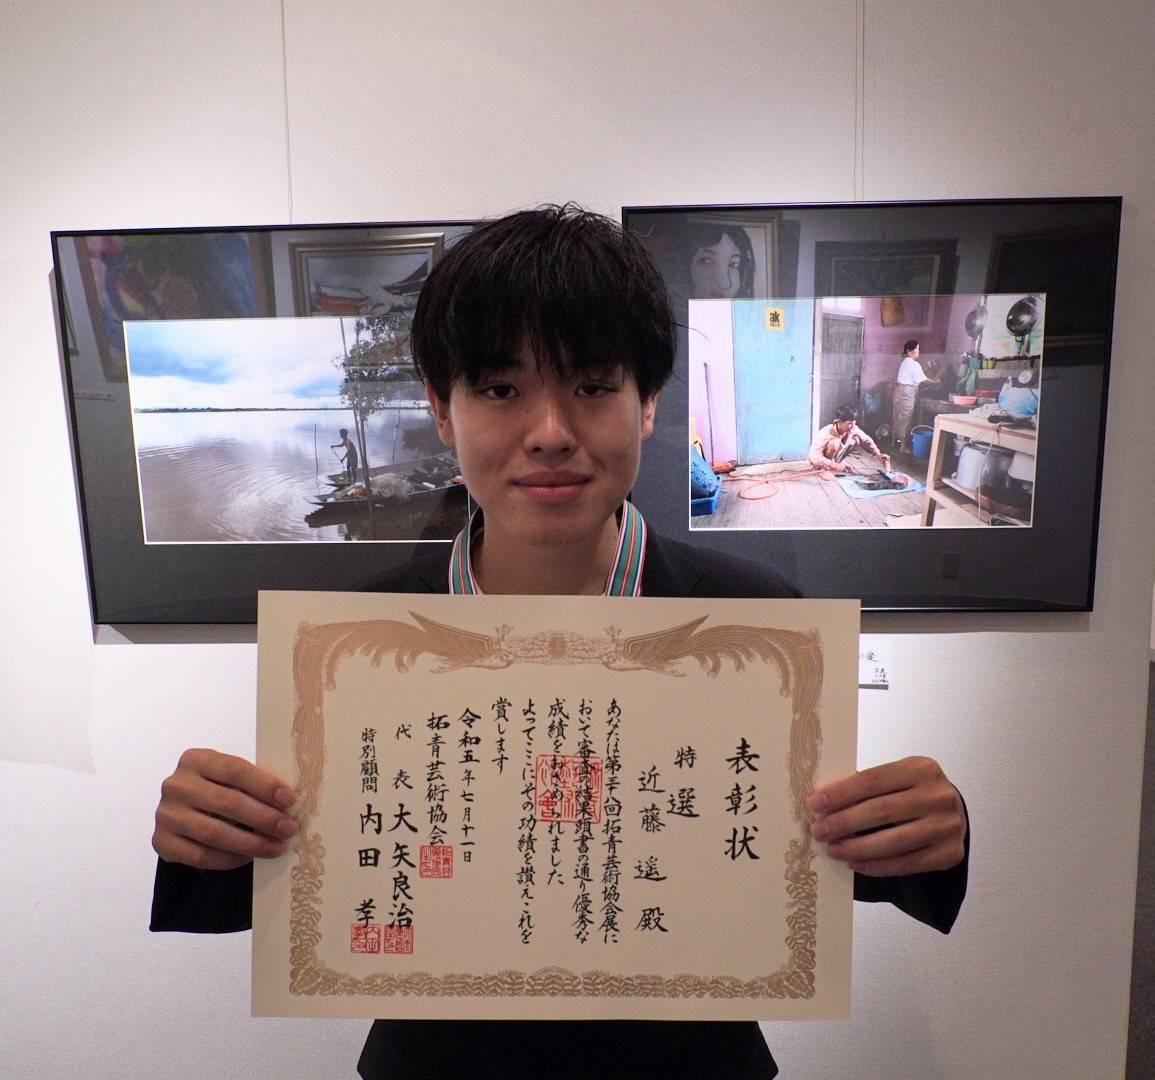 表彰状
特選
近藤遥殿
あなたは第三十八回拓青芸術協会展に
おいて審査の結果頭書の通り優秀な
成績をおさめられました
よってここにその功績を讃えこれを
賞します
令和五年七月十一日
拓青芸術協会
代表大矢良治
特別顧問内田孝
ak
の愛